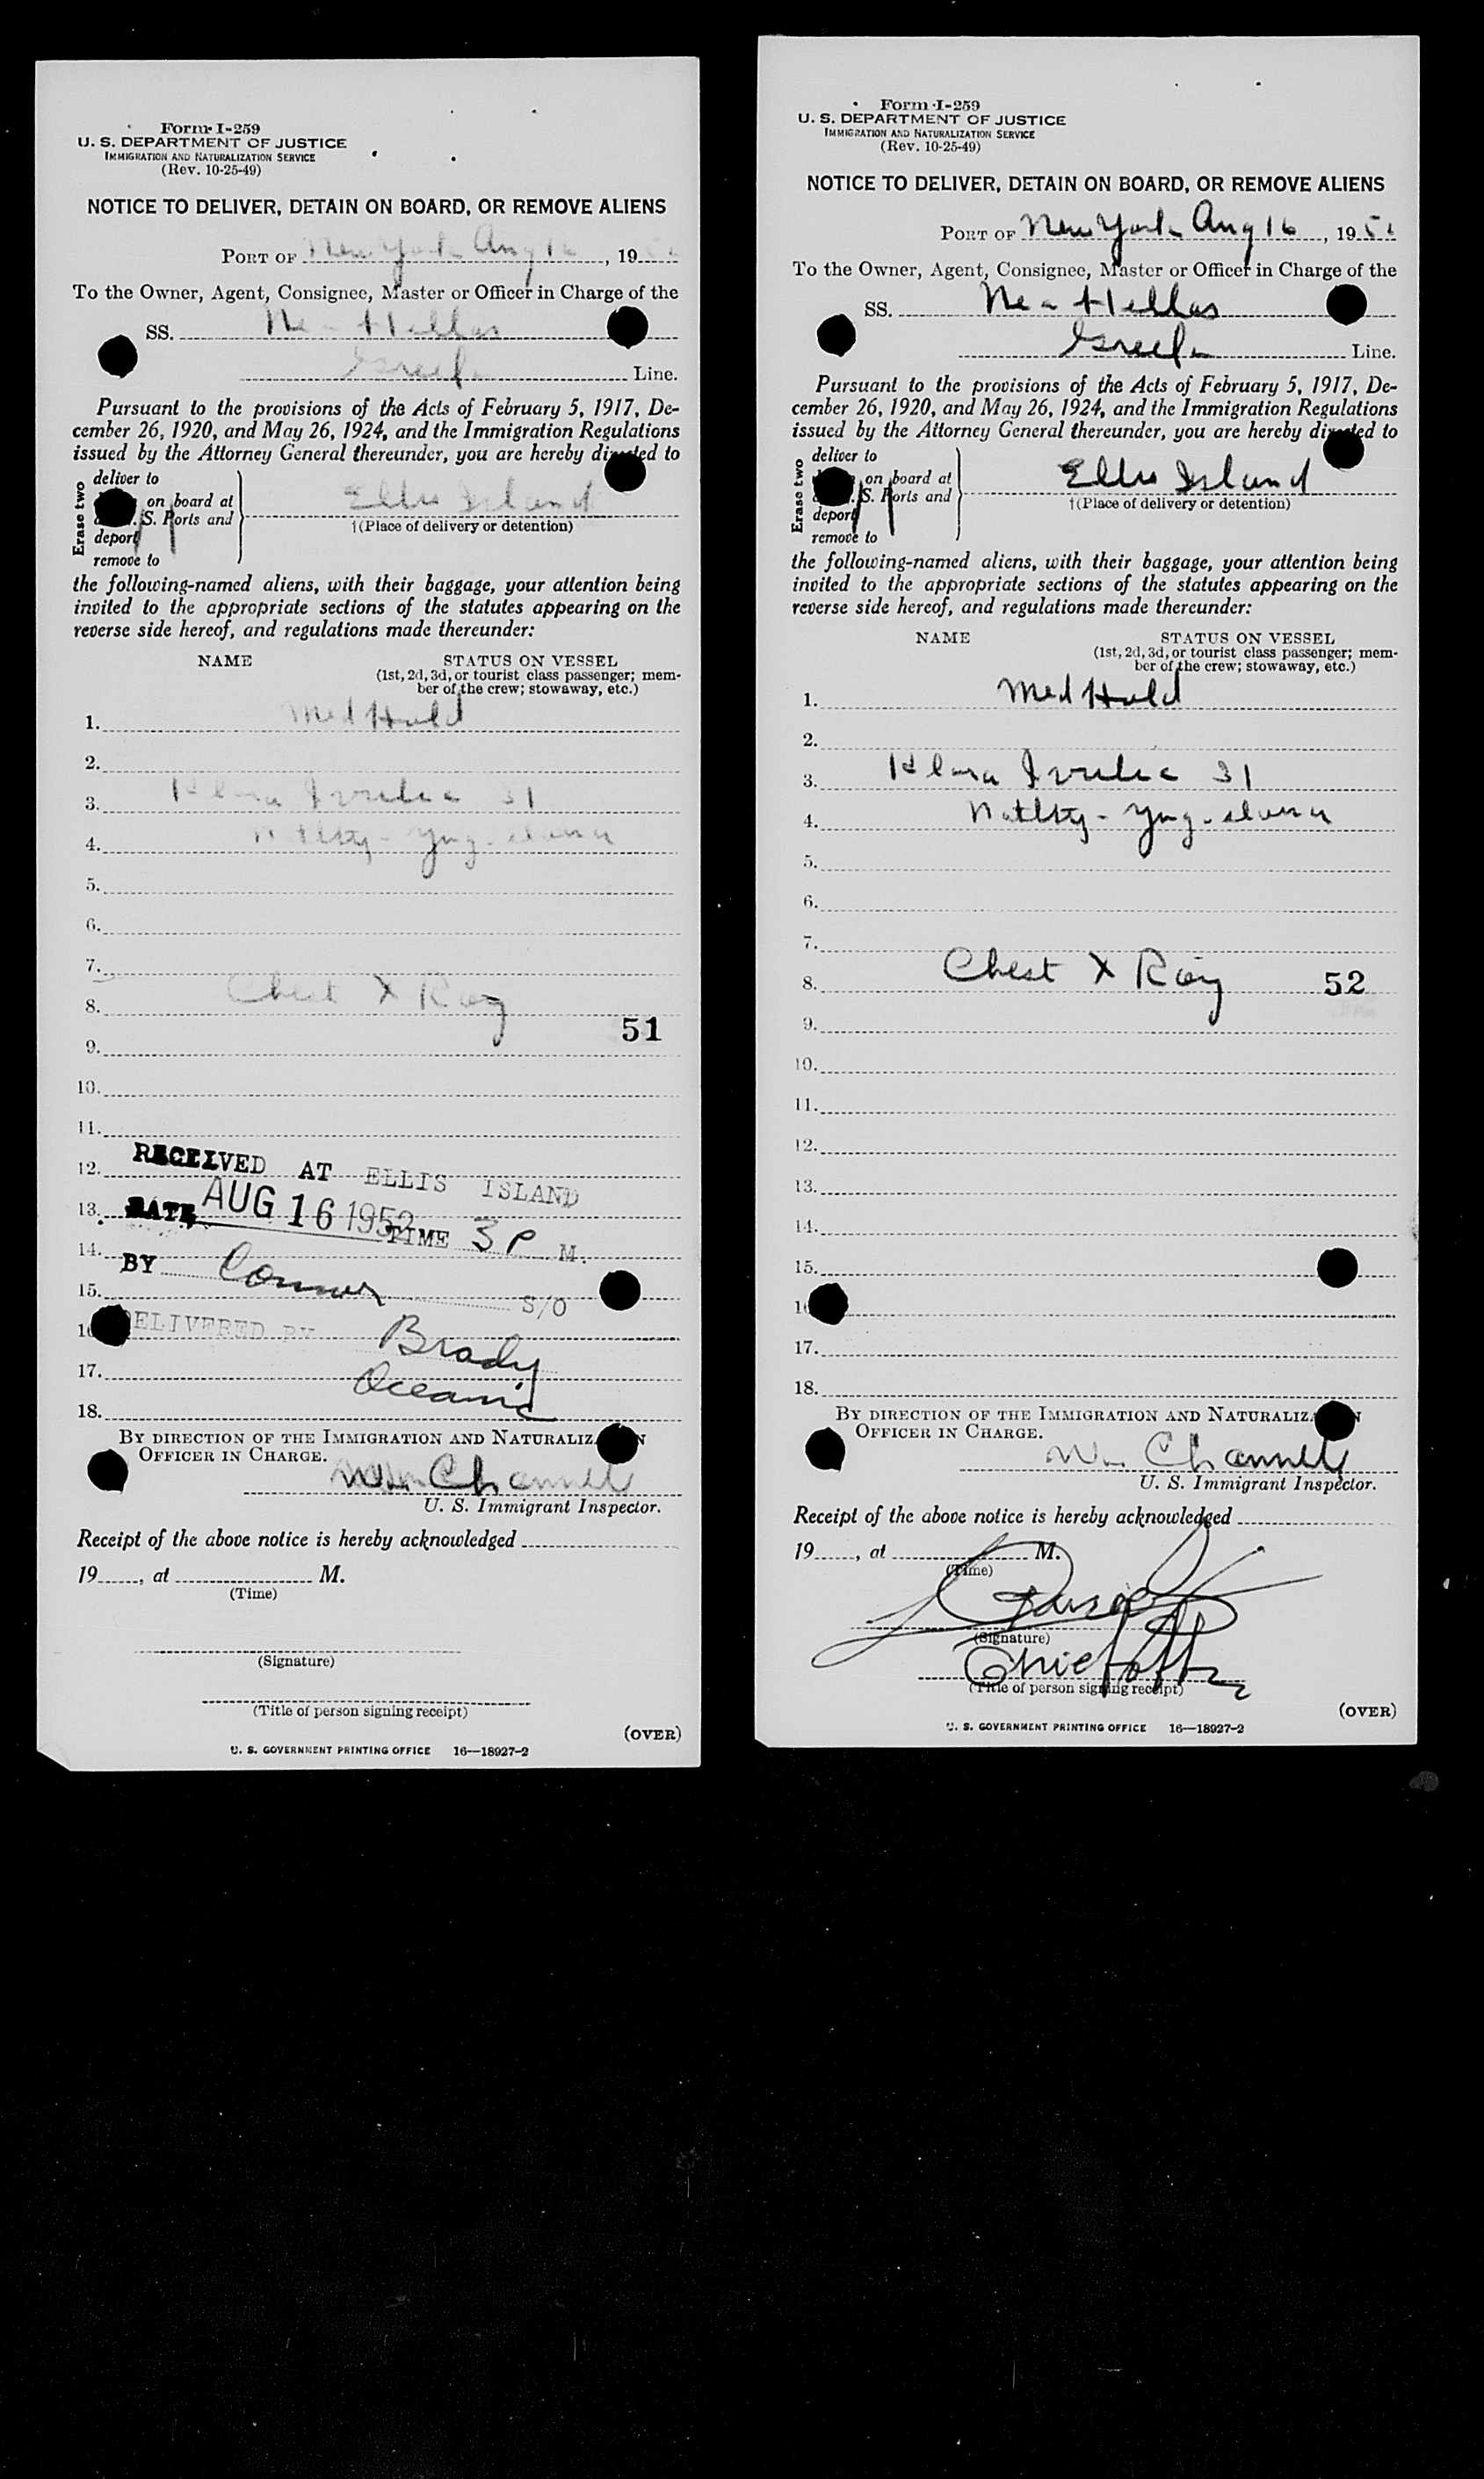 Form I-259
U. S. DEPARTMENT OF JUSTICE
IMMIGRATION AND NATURALIZATION SERVICE
(Rev. 10-25-49)
NOTICE TO DELIVER, DETAIN ON BOARD, OR REMOVE ALIENS
PORT OF New York Aug 16, 19
To the Owner, Agent, Consignee, Master or Officer in Charge of the
SS. Nea Hellas
Greek Line.
Pursuant to the provisions of the Acts of February 5, 1917, De-
cember 26, 1920, and May 26, 1924, and the Immigration Regulations
issued by the Attorney General thereunder, you are hereby directed to
Erase two
deliver to
on board at
S. Ports and
deport
remove to
Ellis Island
†(Place of delivery or detention)
the following-named aliens, with their baggage, your attention being
invited to the appropriate sections of the statutes appearing on the
reverse side hereof, and regulations made thereunder:
NAME STATUS ON VESSEL
(1st, 2d, 3d, or tourist class passenger; mem-
ber of the crew; stowaway, etc.)
1. Med Hold
2.
3. Klara 31
4. Natlty - Yug -
5.
6.
7.
8. Chest X Ray
51
9.
10.
11.
12. RECEIVED AT ELLIS ISLAND
13. DATE AUG 16 1952 TIME 3 P M.
14. BY Connor
15. S/O
16 DELIVERED BY Brady
17. Oceanic
18.
BY DIRECTION OF THE IMMIGRATION AND NATURALIZATION
OFFICER IN CHARGE.
Wm Channell
U. S. Immigrant Inspector.
Receipt of the above notice is hereby acknowledged
19, at M.
(Time)
(Signature)
(Title of person signing receipt)
(OVER)
U. S. GOVERNMENT PRINTING OFFICE 16—18927-2
Form I-259
U. S. DEPARTMENT OF JUSTICE
IMMIGRATION AND NATURALIZATION SERVICE
(Rev. 10-25-49)
NOTICE TO DELIVER, DETAIN ON BOARD, OR REMOVE ALIENS
PORT OF New York Aug 16, 1952
To the Owner, Agent, Consignee, Master or Officer in Charge of the
SS. Nea Hellas
Greek Line.
Pursuant to the provisions of the Acts of February 5, 1917, De-
cember 26, 1920, and May 26, 1924, and the Immigration Regulations
issued by the Attorney General thereunder, you are hereby directed to
Erase two
deliver to
on board at
S. Ports and
deport
remove to
Ellis Island
†(Place of delivery or detention)
the following-named aliens, with their baggage, your attention being
invited to the appropriate sections of the statutes appearing on the
reverse side hereof, and regulations made thereunder:
NAME STATUS ON VESSEL
(1st, 2d, 3d, or tourist class passenger; mem-
ber of the crew; stowaway, etc.)
1. Med Hold
2.
3. Klara 31
4. Natlty - Yug -
5.
6.
7.
8. Chest X Ray 52
9.
10.
11.
12.
13.
14.
15.
16
17.
18.
BY DIRECTION OF THE IMMIGRATION AND NATURALIZATION
OFFICER IN CHARGE.
Wm Channell
U. S. Immigrant Inspector.
Receipt of the above notice is hereby acknowledged
19, at M.
(Time)
(Signature)
Chief Offr
(Title of person signing receipt)
(OVER)
U. S. GOVERNMENT PRINTING OFFICE 16—18927-2